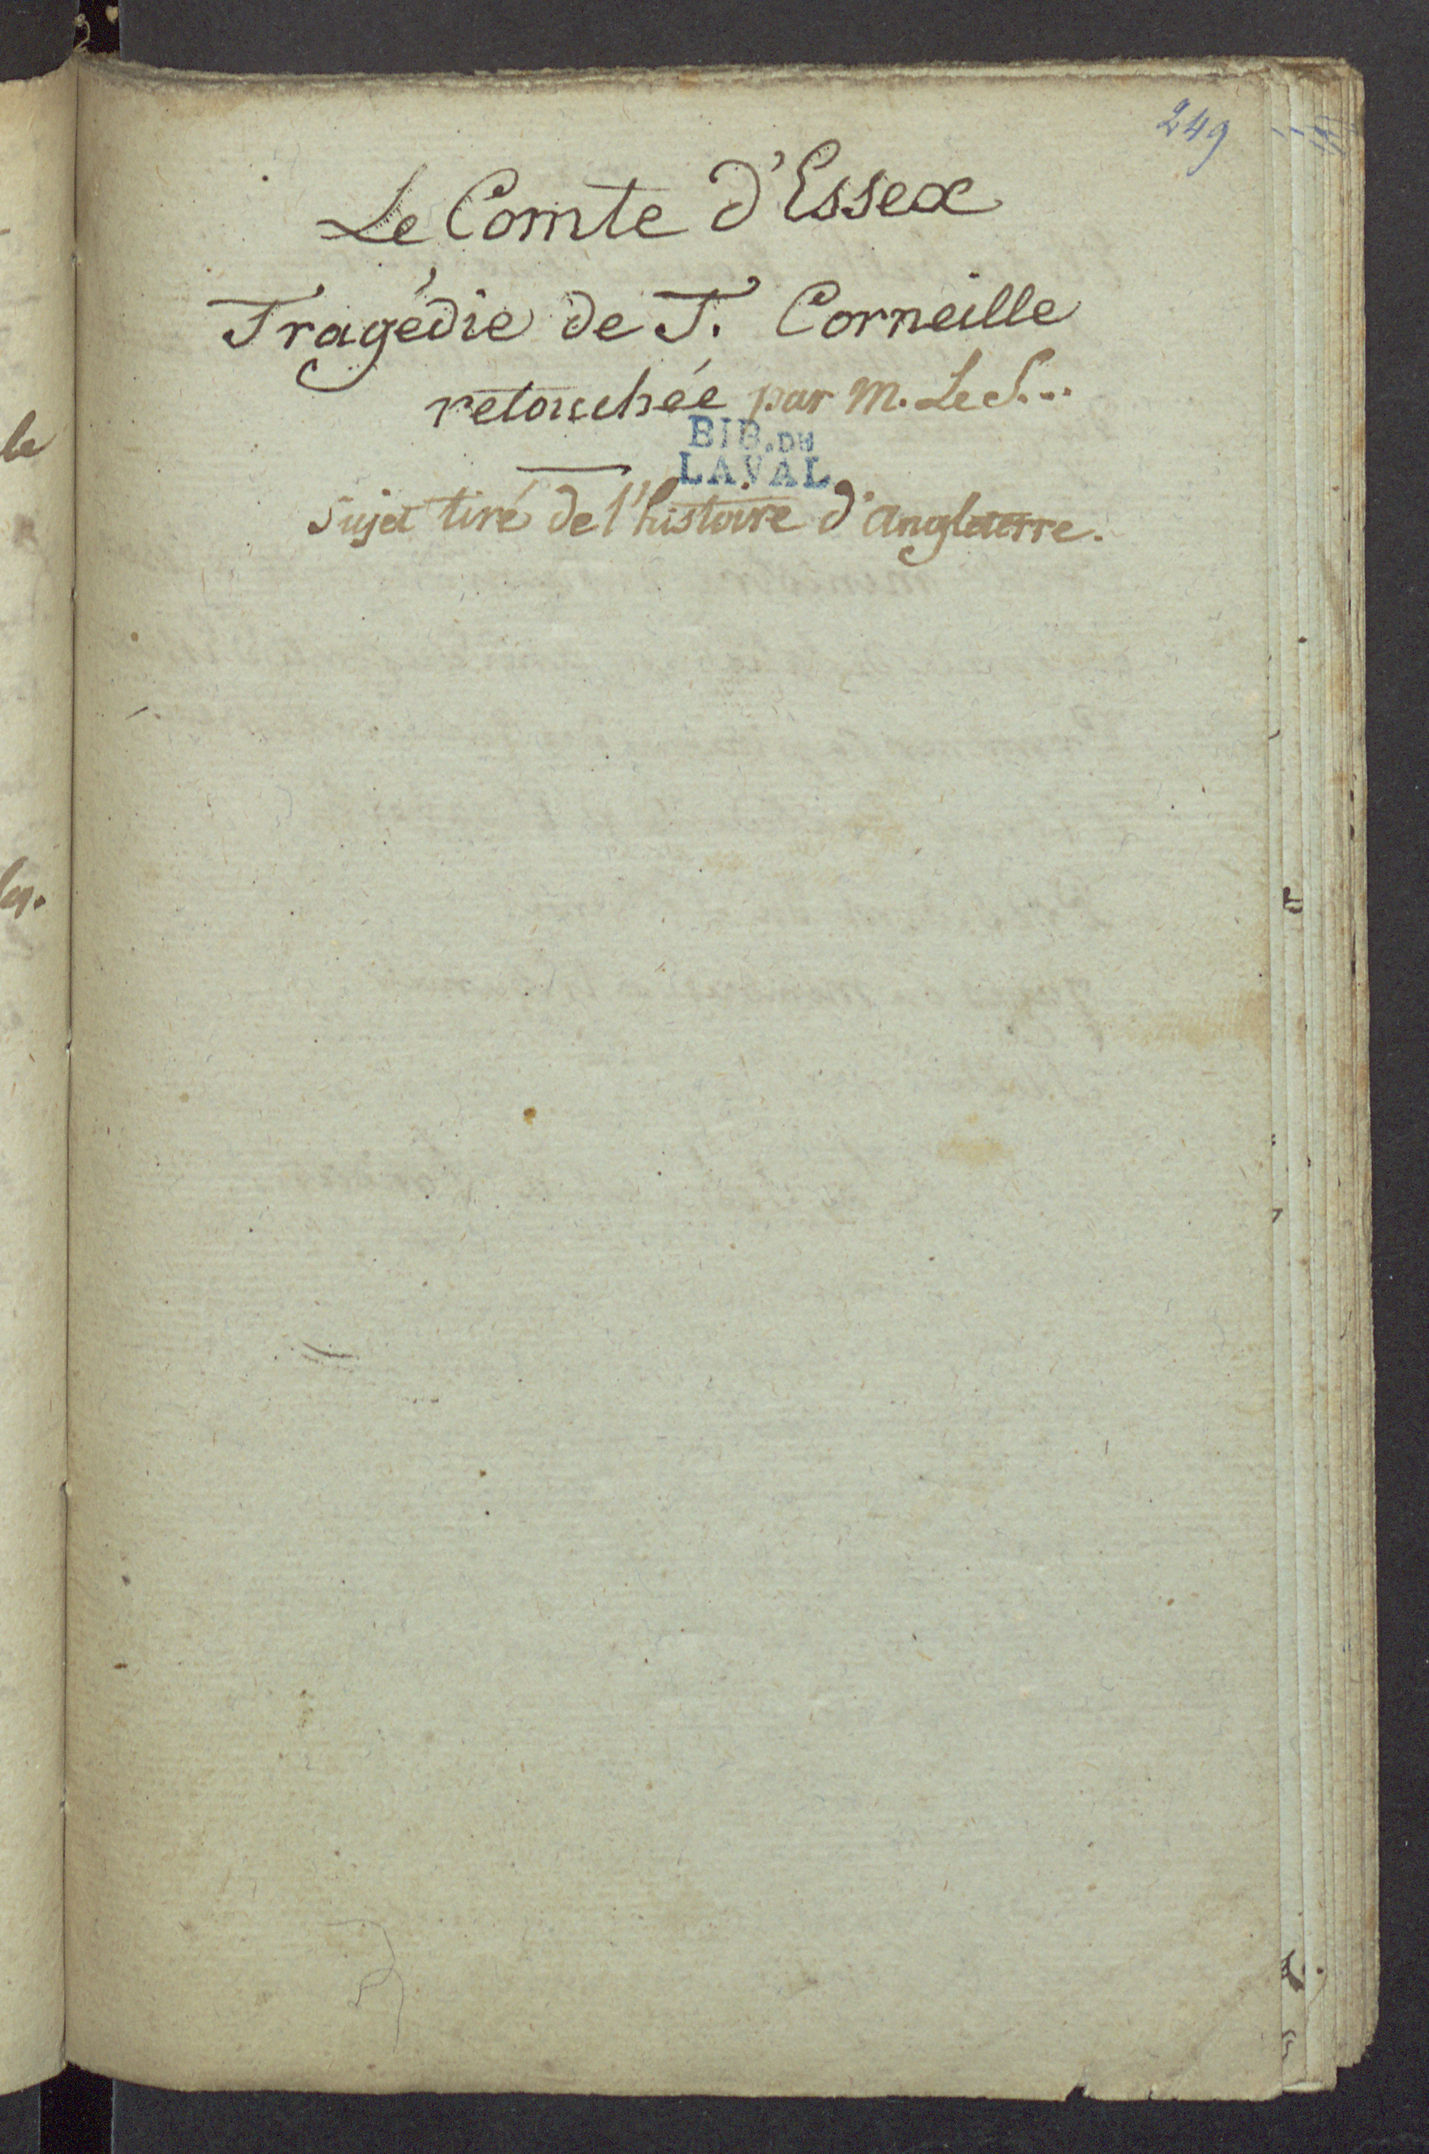 249
Le Comte d'Essex
Tragédie de T. Corneille
retouchée par M. Le S...
BIB. DE
LAVAL
Sujet tiré de l'histoire d'Angleterre.
le